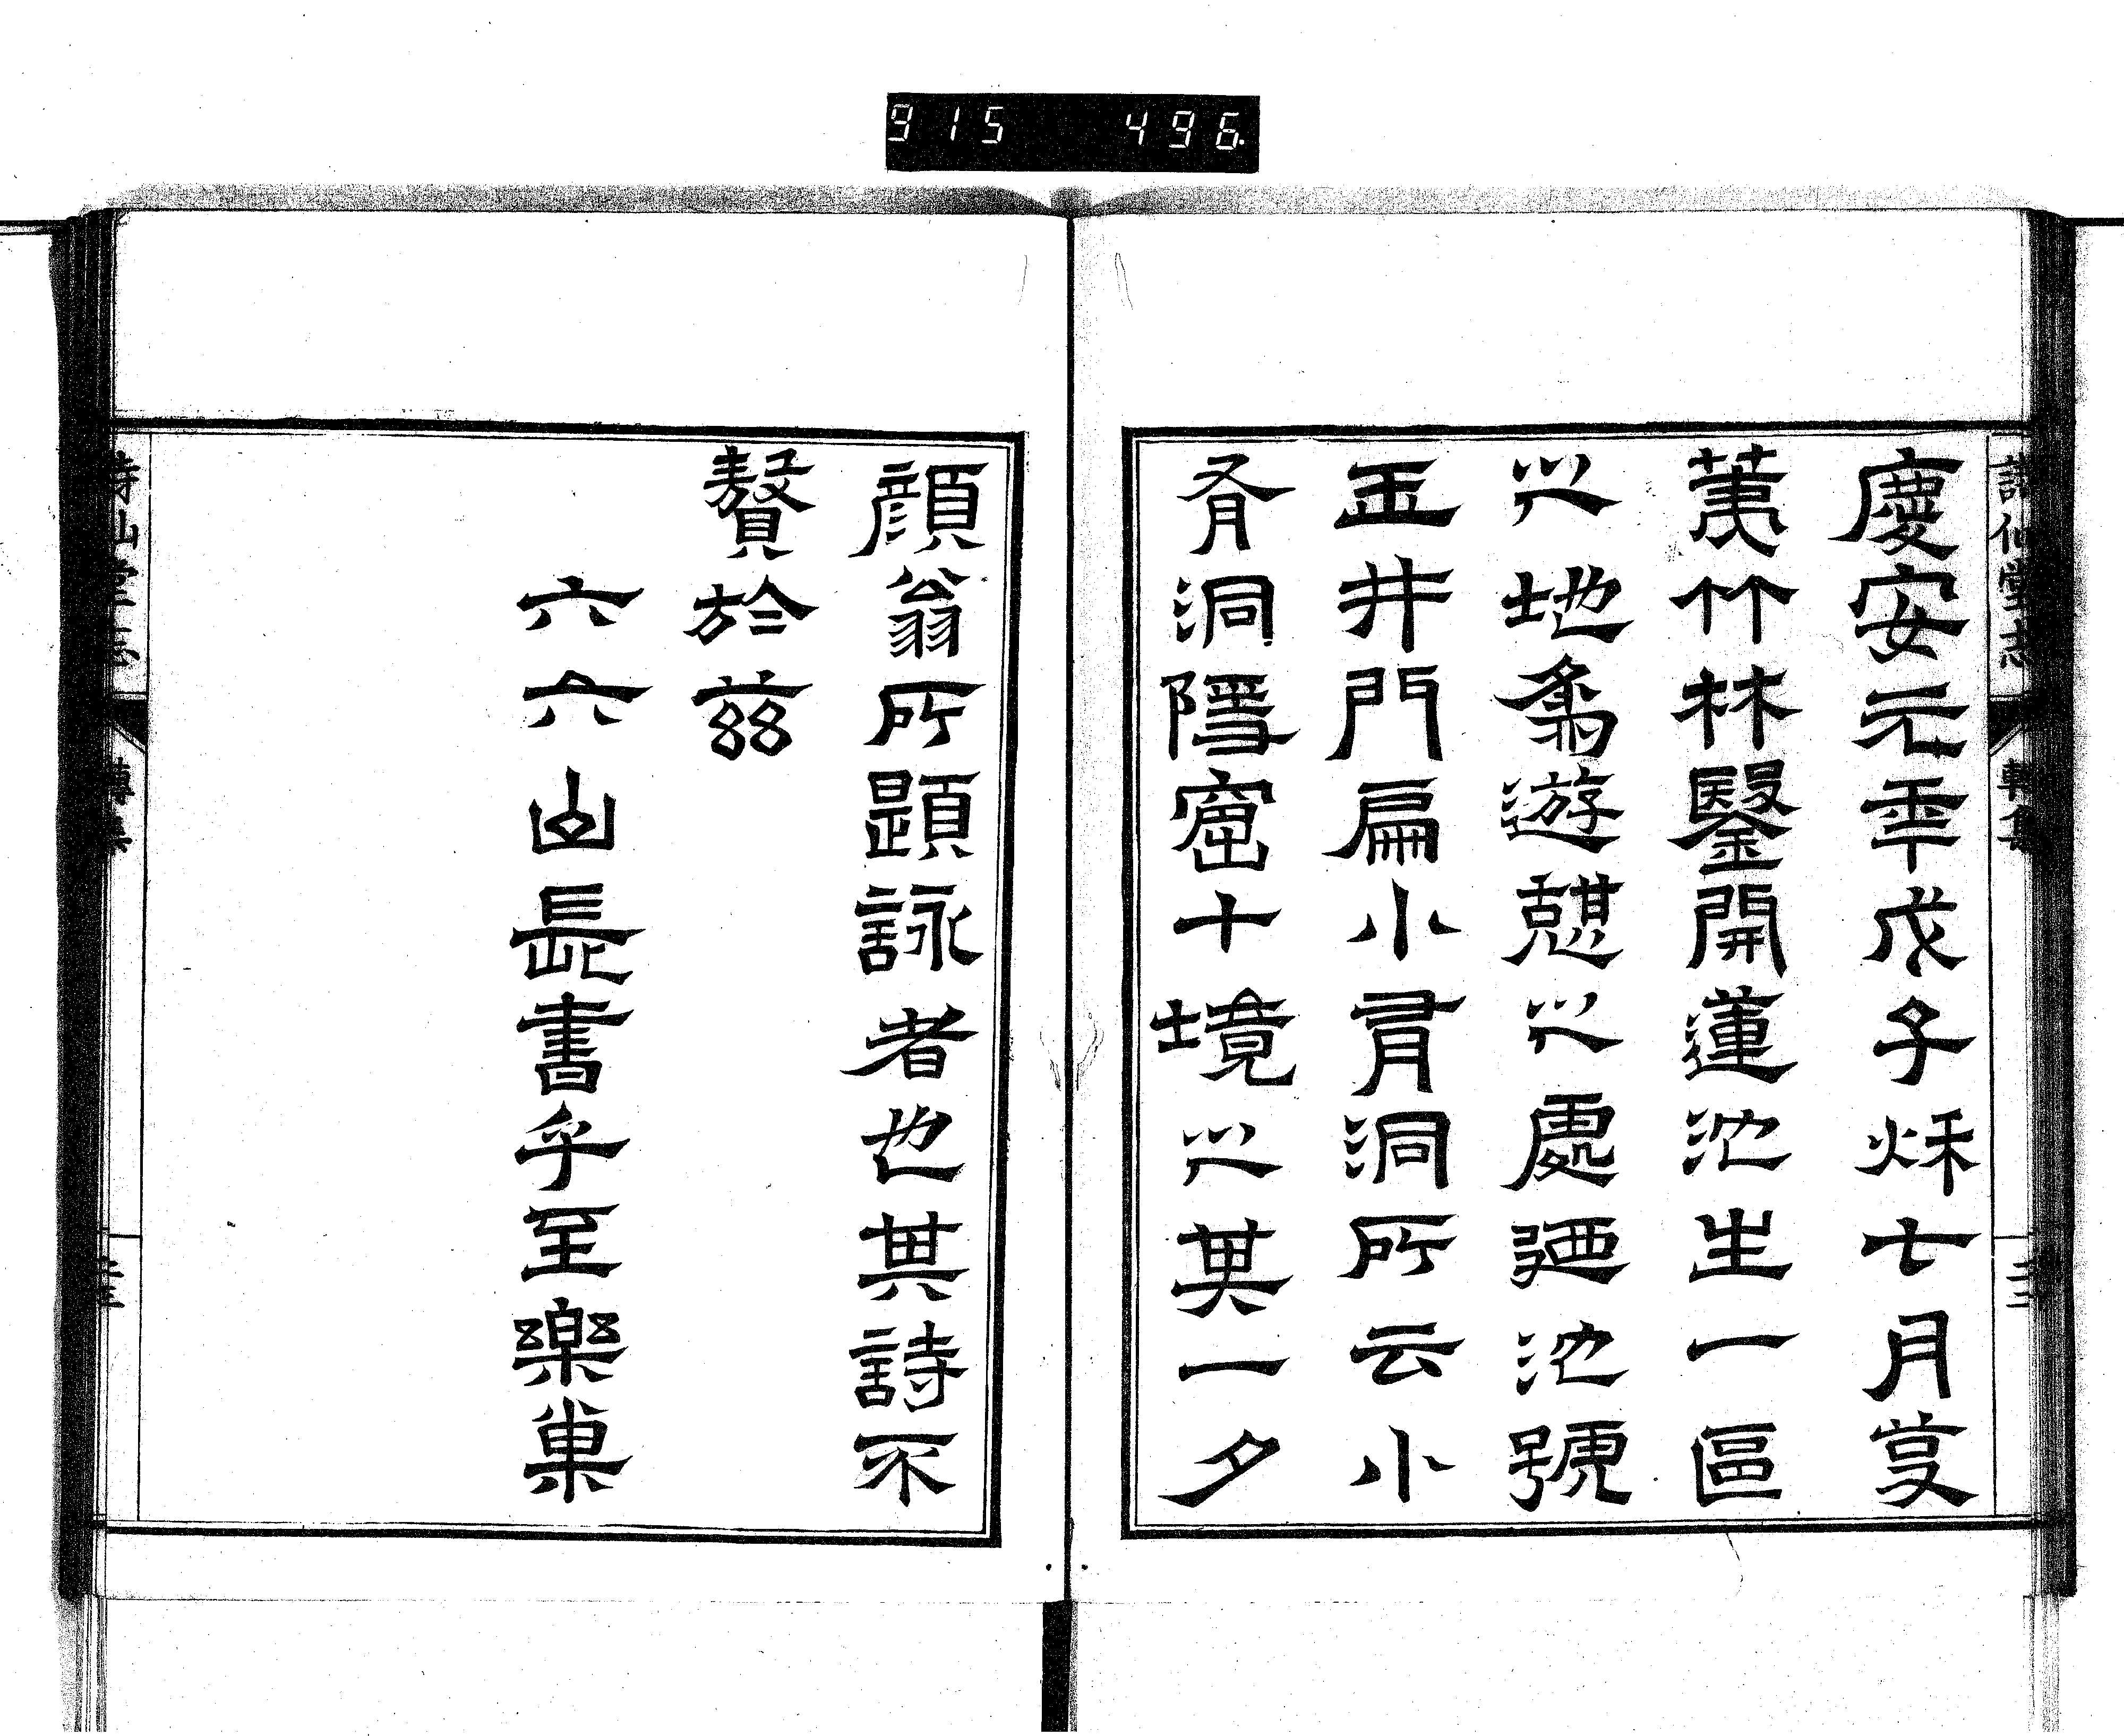 915 496
詩仙堂志
慶安元年戊子秌七月芟
荑竹林鑿開蓮池生一區
之地為遊憩之處廻池號
玉井門扁小有洞所云小
有洞隱窟十境之其一夕
顔翁所題詠者也其詩不
贅於茲
六六山長書乎至樂巢
詩仙堂志